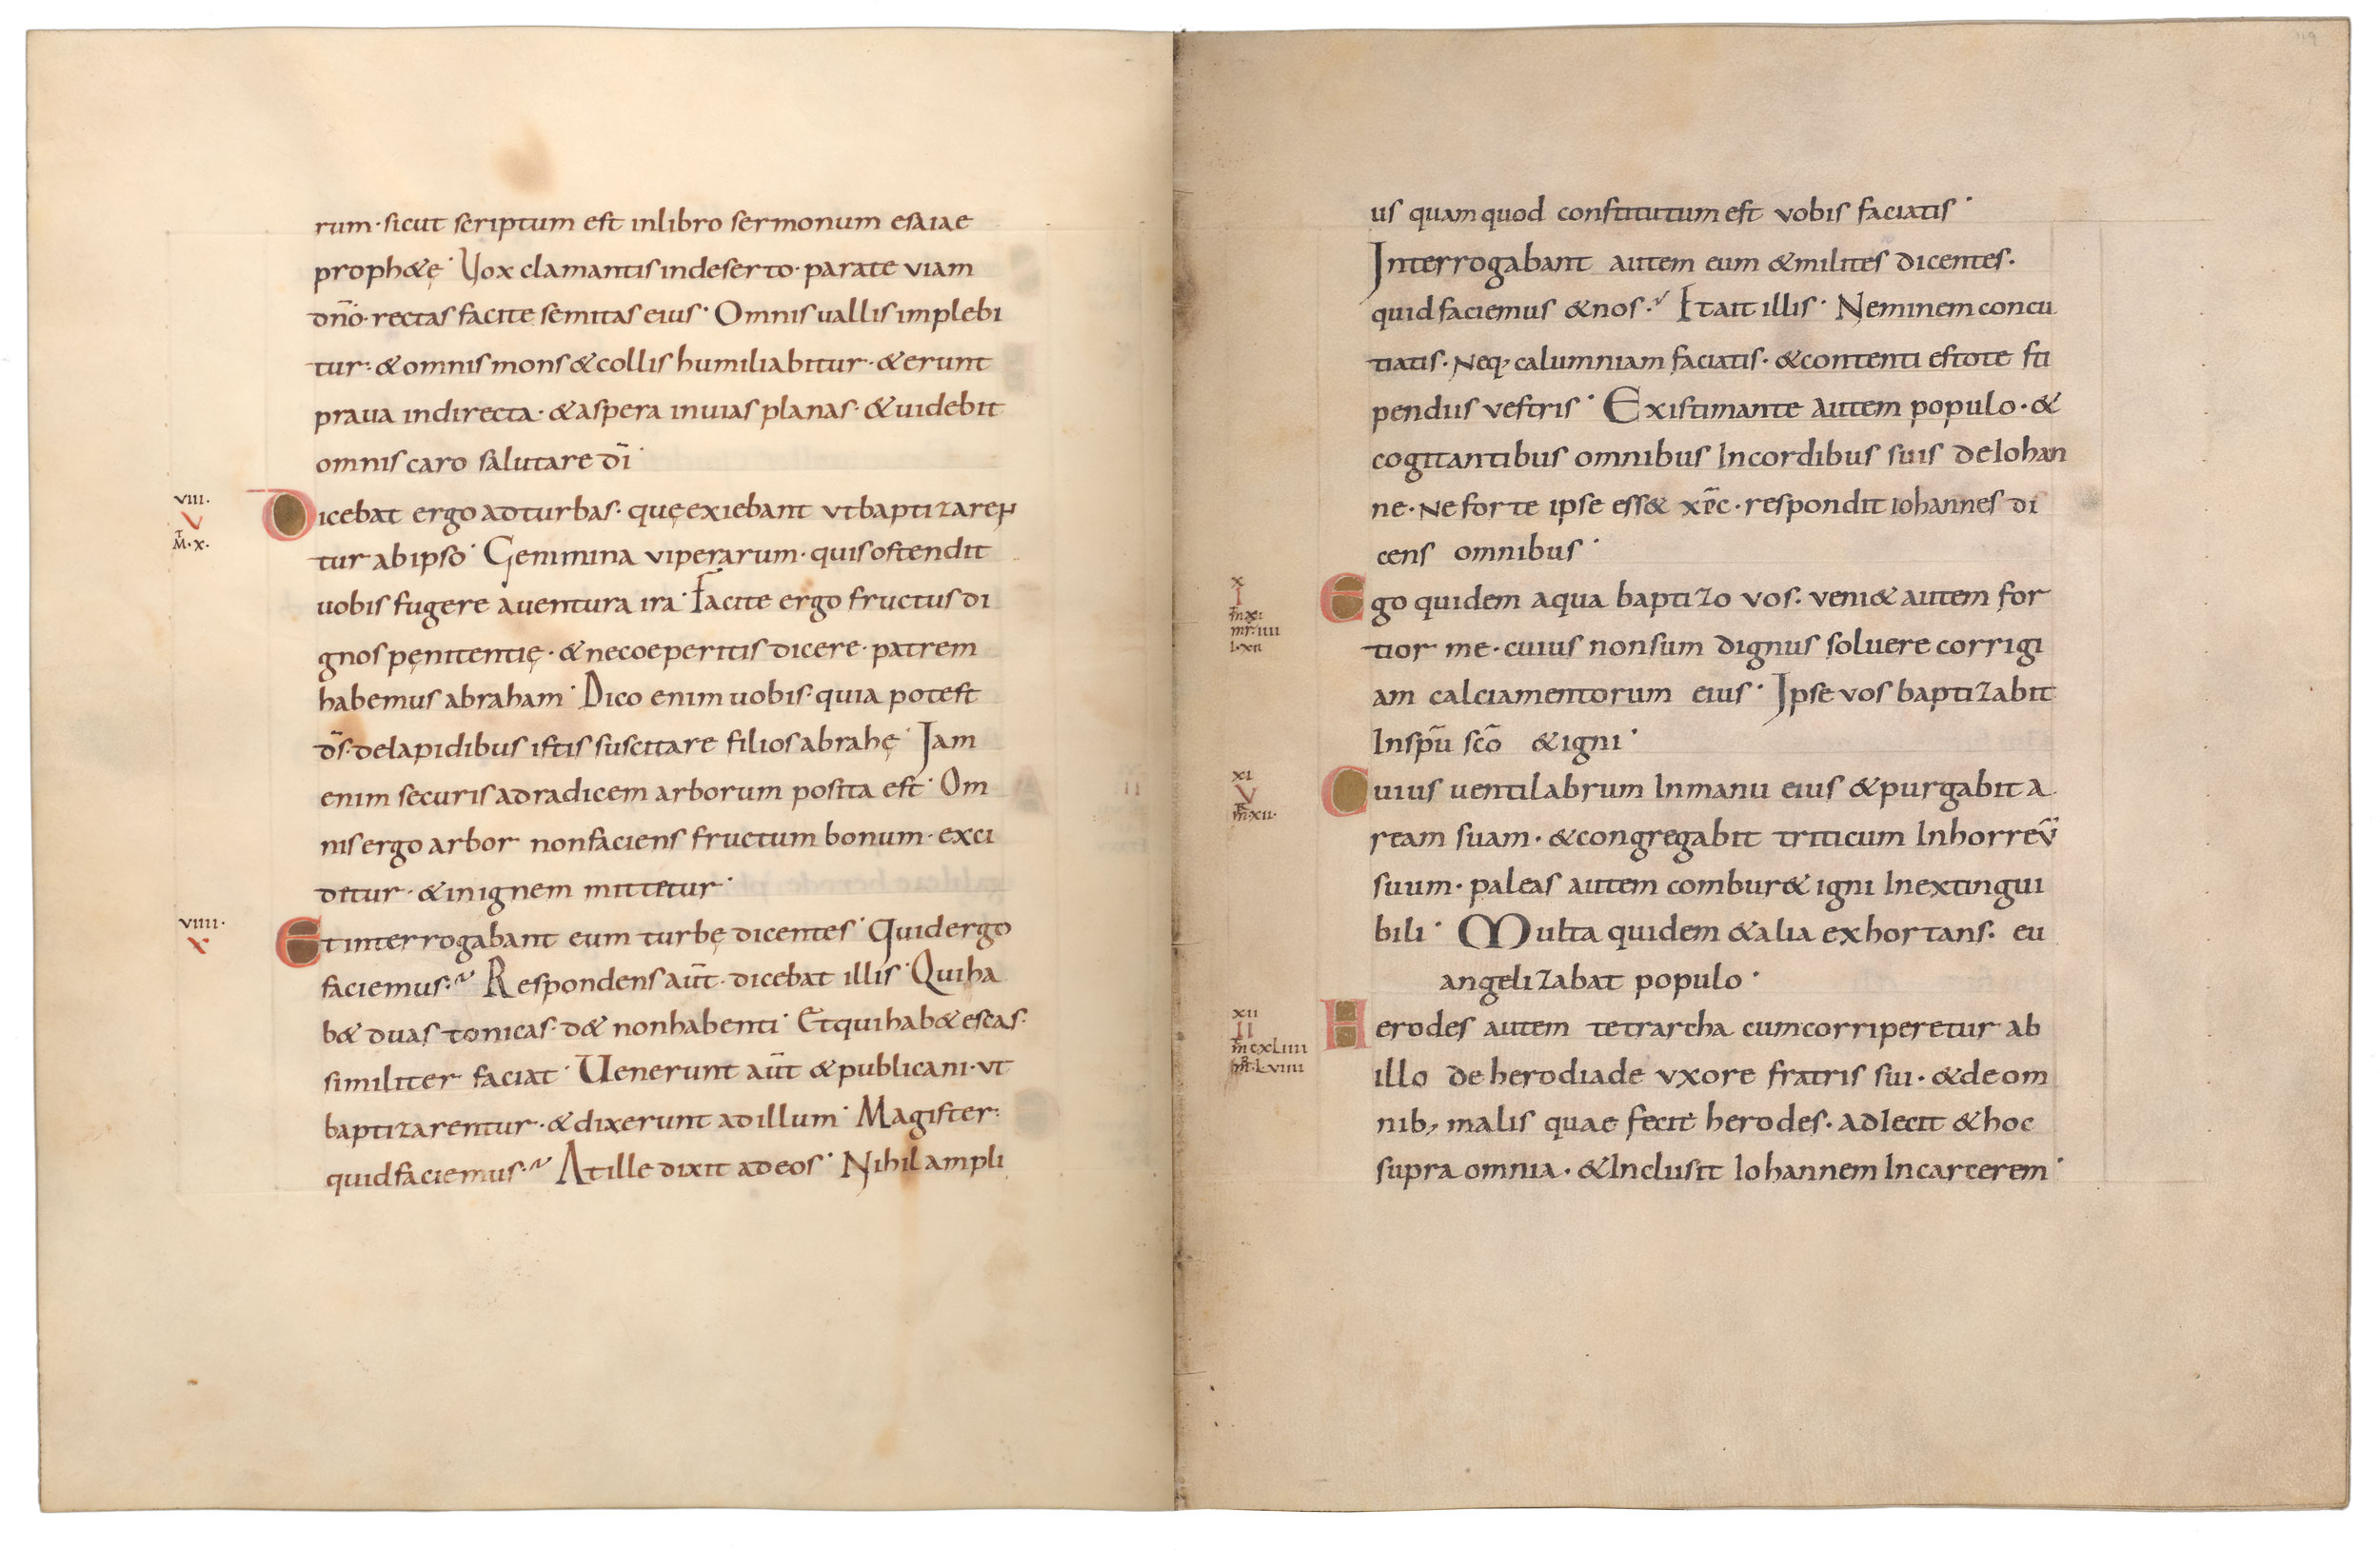 rum · sicut scriptum est inlibro sermonum esaiae
proph&ę · Vox clamantis indeserto · parate viam
dn̄o · rectas facite semitas eius · Omnis uallis implebi
tur : & omnis mons & collis humiliabitur · & erunt
praua indirecta · & aspera inuias planas · & uidebit
omnis caro salutare dī ·
VIII ·
V
M · X ·
Dicebat ergo adturbas · quę exiebant vt baptizaren
tur abipso · Gemmina viperarum · quis ostendit
uobis fugere auentura ira · Facite ergo fructus di
gnos pęnitentię · & necoeperitis dicere · patrem
habemus abraham · Dico enim uobis · quia potest
d̄s · delapidibus istis suscitare filios abrahę · Jam
enim securis adradicem arborum posita est · Om
nis ergo arbor nonfaciens fructum bonum · exci
detur · & inignem mittetur ·
VIIII ·
X
Et interrogabant eum turbę dicentes · Quid ergo
faciemus · Respondens aut̄ · dicebat illis · Qui ha
b& duas tonicas · d& nonhabenti · Et qui hab& escas ·
similiter faciat · Uenerunt aut̄ & publicani · vt
baptizarentur · & dixerunt adillum · Magister :
quid faciemus · At ille dixit adeos · Nihil ampli
119
us quam quod constitutum est vobis faciatis ·
Jnterrogabant autem eum & milites dicentes ·
quid faciemus & nos · Et ait illis · Neminem concu
tiatis · Neq; calumniam faciatis · & contenti estote sti
pendiis vestris · Existimante autem populo · &
cogitantibus omnibus Incordibus suis de Iohan
ne · Ne forte ipse ess& xp̄c · respondit iohannes di
cens omnibus ·
X
I
mr̄ · IIII
I · XII
Ego quidem aqua baptizo vos · veni& autem for
tior me · cuius nonsum dignus soluere corrigi
am calciamentorum eius · Jpse vos baptizabit
Inspū scō & igni ·
XI
V
m · XII ·
Cuius uentilabrum Inmanu eius & purgabit a
ream suam · & congregabit triticum Inhorreū
suum · paleas autem combur& igni Inextingui
bili · Multa quidem & alia exhortans · eu
angelizabat populo ·
XII
II
m cxLIIII
m · LVIIII
Herodes autem tetrarcha cum corriperetur ab
illo de herodiade vxore fratris sui · & de om
nib; malis quae fecit herodes · adIecit & hoc
supra omnia · & Inclusit Iohannem Incarcerem ·